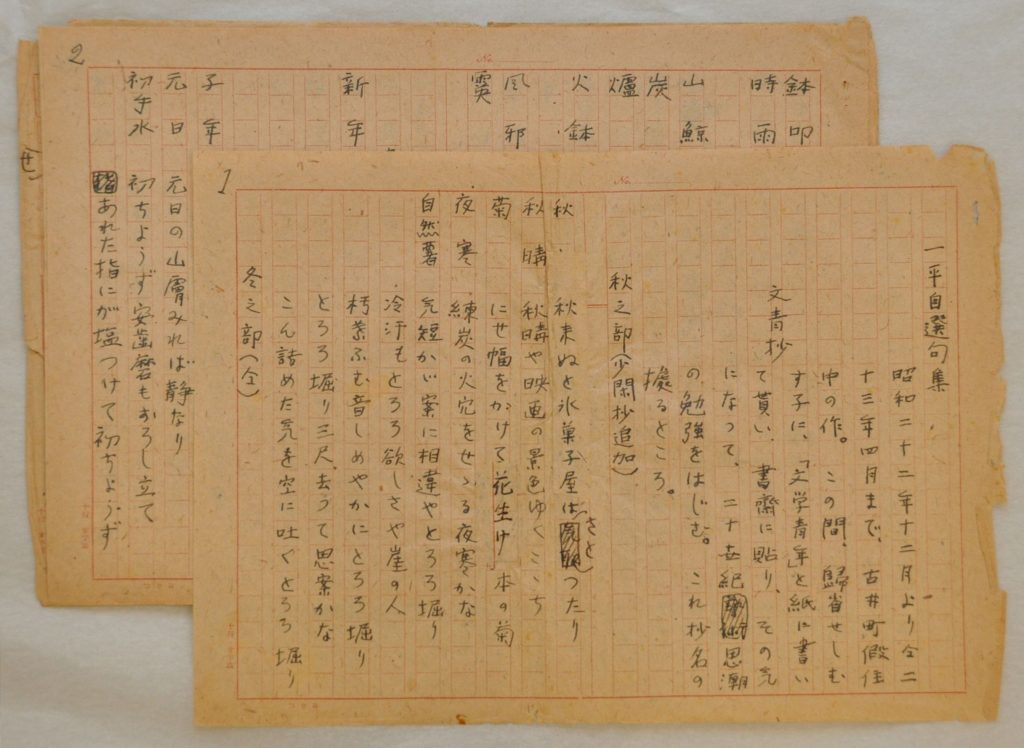 1
一平自選句集
文青抄
昭和二十二年十二月より仝二
十三年四月まで、古井町假住
中の作。この間、歸省せしむ
す子に、「文学青年」と紙に書い
て貰い、書齋に貼り、その気
になって、二十世紀思潮
の勉強をはじむ。これ抄名の
據るところ。
秋之部(少閑抄追加)
秋 秋来ぬと氷菓子屋はさとつたり
秋晴 秋晴や映画の景色ゆくこゝち
菊 にせ幅をかけて花生け一本の菊
夜寒 練炭の火穴をせゝる夜寒かな
自然薯 気短かい案に相違やとろろ堀り
冷汗もとろろ欲しさや崖の人
朽葉ふむ音しめやかにとろろ堀り
とろろ堀り三尺去って思案かな
こん詰めた気を空に吐くとろろ堀り
冬之部(仝)
No.
2
鉢叩
時雨
山鯨
炭
爐
火鉢
風邪
霙
新年
子年
元日 元日の山膚みれば静なり
初手水 初ちようず安歯磨もおろし立て
あれた指にが塩つけて初ちようず
No.